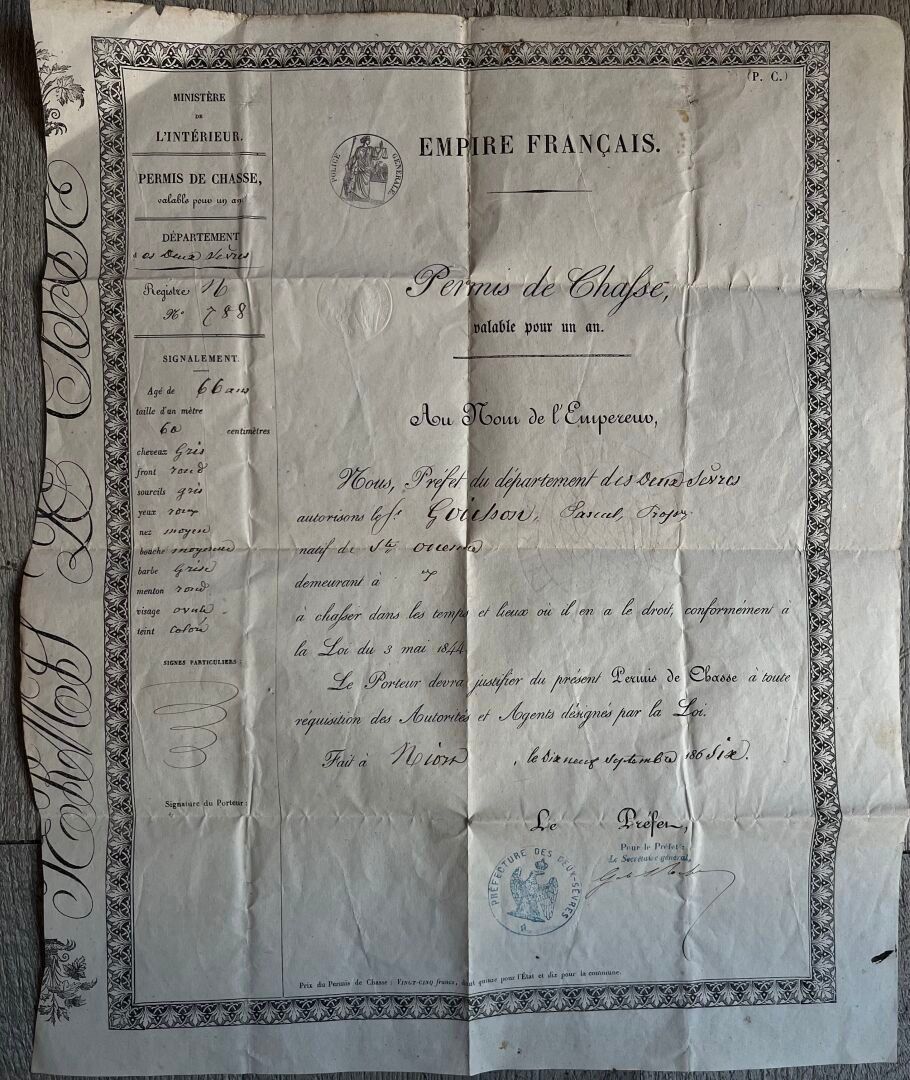 (P. C.)
MINISTÈRE
DE
L'INTÉRIEUR.
PERMIS DE CHASSE,
valable pour un an
DÉPARTEMENT
es Deux Sèvres
Registre 16
N° 788
SIGNALEMENT.
Agé de 66 ans
taille d'un mètre
60 centimètres
cheveux Gris
front rond
sourcils gris
yeux roux
nez moyen
bouche moyenne
barbe Grise
menton rond
visage ovale
teint coloré
SIGNES PARTICULIERS :
Signature du Porteur :
POLICE GÉNÉRALE
EMPIRE FRANÇAIS.
Permis de Chasse,
valable pour un an.
Au Nom de l'Empereur,
Nous, Préfet du département des Deux Sèvres
autorisons le Sr Pascal,
natif de Ste
demeurant à
à chasser dans les temps et lieux où il en a le droit, conformément à
la Loi du 3 mai 1844.
Le Porteur devra justifier du présent Permis de Chasse à toute
réquisition des Autorités et Agents désignés par la Loi.
Fait à Niort, le dix neuf Septembre 186 Six.
Le Préfet,
Pour le Préfet :
Le Secrétaire général,
PRÉFECTURE DES DEUX-SÈVRES
Prix du Permis de Chasse : VINGT-CINQ francs, dont quinze pour l'État et dix pour la commune.
PERMIS DE CHASSE